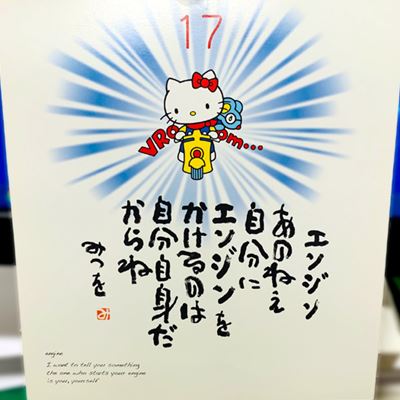 17
VROom...
エンジン
あのねえ
自分に
エンジンを
かけるのは
自分自身だ
からね
みつを
engine
I want to tell you something
the one who starts your engine
is you, yourself